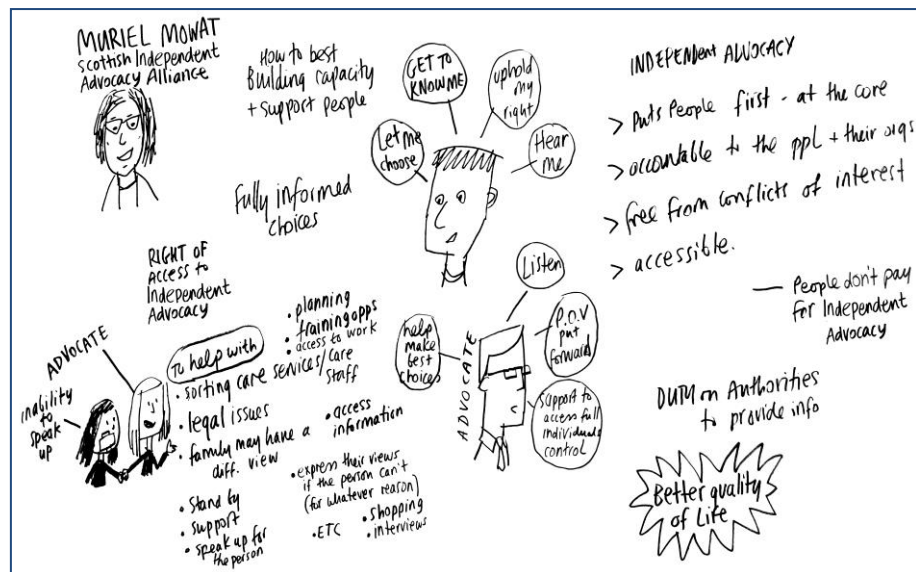 MURIEL MOWAT
Scottish Independent
Advocacy Alliance
How to best
Building capacity
+ Support People
Fully informed
choices
GET TO
KNOW ME
uphold
my
right
Let me
choose
Hear
me
INDEPENDENT ADVOCACY
> Puts People first - at the core
> accountable to the ppl + their orgs
> free from conflicts of interest
> accessible.
— People don't pay
for Independent
Advocacy
RIGHT OF
Access to
Independent
Advocacy
ADVOCATE
inability
to
speak
up
To help with
• planning
• training opps
• access to work
• sorting care services/care
staff
• legal issues
• access
information
• family may have a
diff. view
• Stand by
• support
• speak up for
the person
• express their views
if the person can't
(for whatever reason)
• ETC
• shopping
• interviews
Listen
help
make
best
choices
ADVOCATE
P.O.V
put
forward
Support to
access full
individuals
control
DUTY on Authorities
to provide info
Better quality
of Life